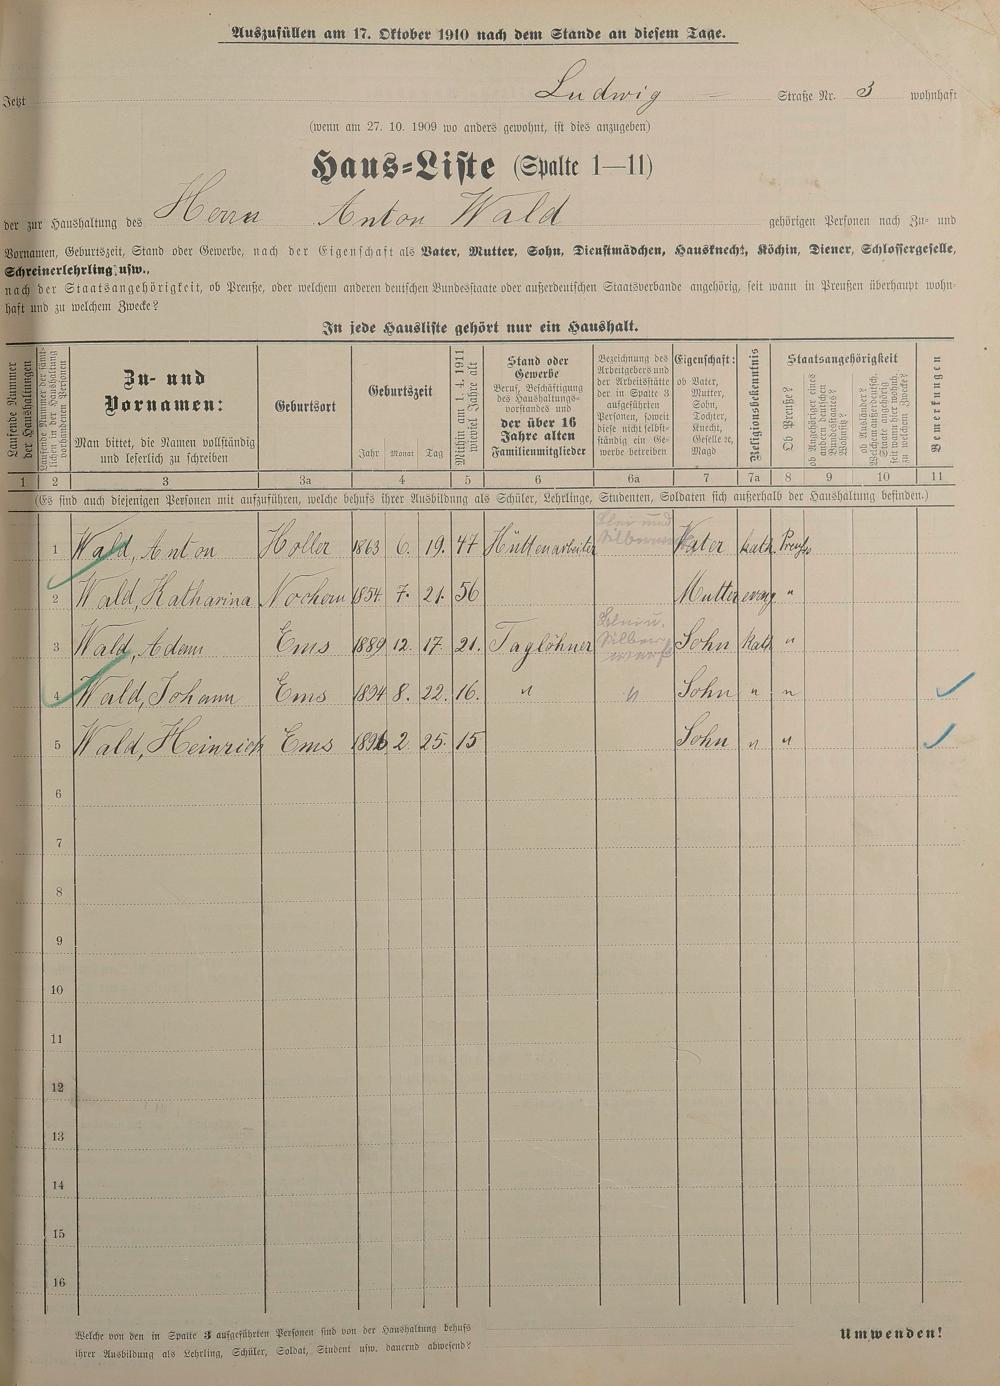 Auszufüllen am 17. Oktober 1910 nach dem Stande an diesem Tage.
Jetzt Ludwig Straße Nr. 3 wohnhaft
(wenn am 27. 10. 1909 wo anders gewohnt, ist dies anzugeben)
Haus-Liste (Spalte 1—11)
der zur Haushaltung des Herrn Anton Wald gehörigen Personen nach Zu- und
Vornamen, Geburtszeit, Stand oder Gewerbe, nach der Eigenschaft als Vater, Mutter, Sohn, Dienstmädchen, Hausknecht, Köchin, Diener, Schlossergeselle,
Schreinerlehrling usw.,
nach der Staatsangehörigkeit, ob Preuße, oder welchem anderen deutschen Bundesstaate oder außerdeutschen Staatsverbande angehörig, seit wann in Preußen überhaupt wohn-
haft und zu welchem Zwecke?
In jede Hausliste gehört nur ein Haushalt.
Laufende Nummer
der Haushaltungen
Laufende Nummer der sämt-
lichen in der Haushaltung
vorhandenen Personen
Zu- und
Vornamen:
Man bittet, die Namen vollständig
und leserlich zu schreiben
Geburtsort
Geburtszeit
Jahr Monat Tag
Mithin am 1. 4. 1911
wieviel Jahre alt
Stand oder
Gewerbe
Beruf, Beschäftigung
des Haushaltungs-
vorstandes und
der über 16
Jahre alten
Familienmitglieder
Bezeichnung des
Arbeitgebers und
der Arbeitsstätte
der in Spalte 3
aufgeführten
Personen, soweit
diese nicht selbst-
ständig ein Ge-
werbe betreiben
Eigenschaft:
ob Vater,
Mutter,
Sohn,
Tochter,
Knecht,
Geselle ec,
Magd
Religionsbekenntnis
Staatsangehörigkeit
Ob Preuße?
ob Angehöriger eines
andern deutschen
Bundesstaates?
Wohnsitz?
ob Ausländer?
Welchem außerdeutsch.
Staate angehörig
seit wann hier wohnh.
zu welchem Zwecke?
Bemerkungen
1 2 3 3a 4 5 6 6a 7 7a 8 9 10 11
(Es sind auch diejenigen Personen mit aufzuführen, welche behufs ihrer Ausbildung als Schüler, Lehrlinge, Studenten, Soldaten sich außerhalb der Haushaltung befinden.)
1 Wald, Anton Holler 1863 6. 19. 47 Hüttenarbeiter Blei und Silber Vater kath. Preuße
2 Wald, Katharina Nochern 1854 7. 21. 56 Mutter evang "
3 Wald, Adam Ems 1889 12. 17. 21. Taglöhner Blei u. Silber Sohn kath "
4 Wald, Johann Ems 1894 8. 22. 16. " " Sohn " "
5 Wald, Heinrich Ems 1896 2. 25. 15 Sohn " "
6
7
8
9
10
11
12
13
14
15
16
Welche von den in Spalte 3 aufgeführten Personen sind von der Haushaltung behufs
ihrer Ausbildung als Lehrling, Schüler, Soldat, Student usw. dauernd abwesend?
Umwenden!